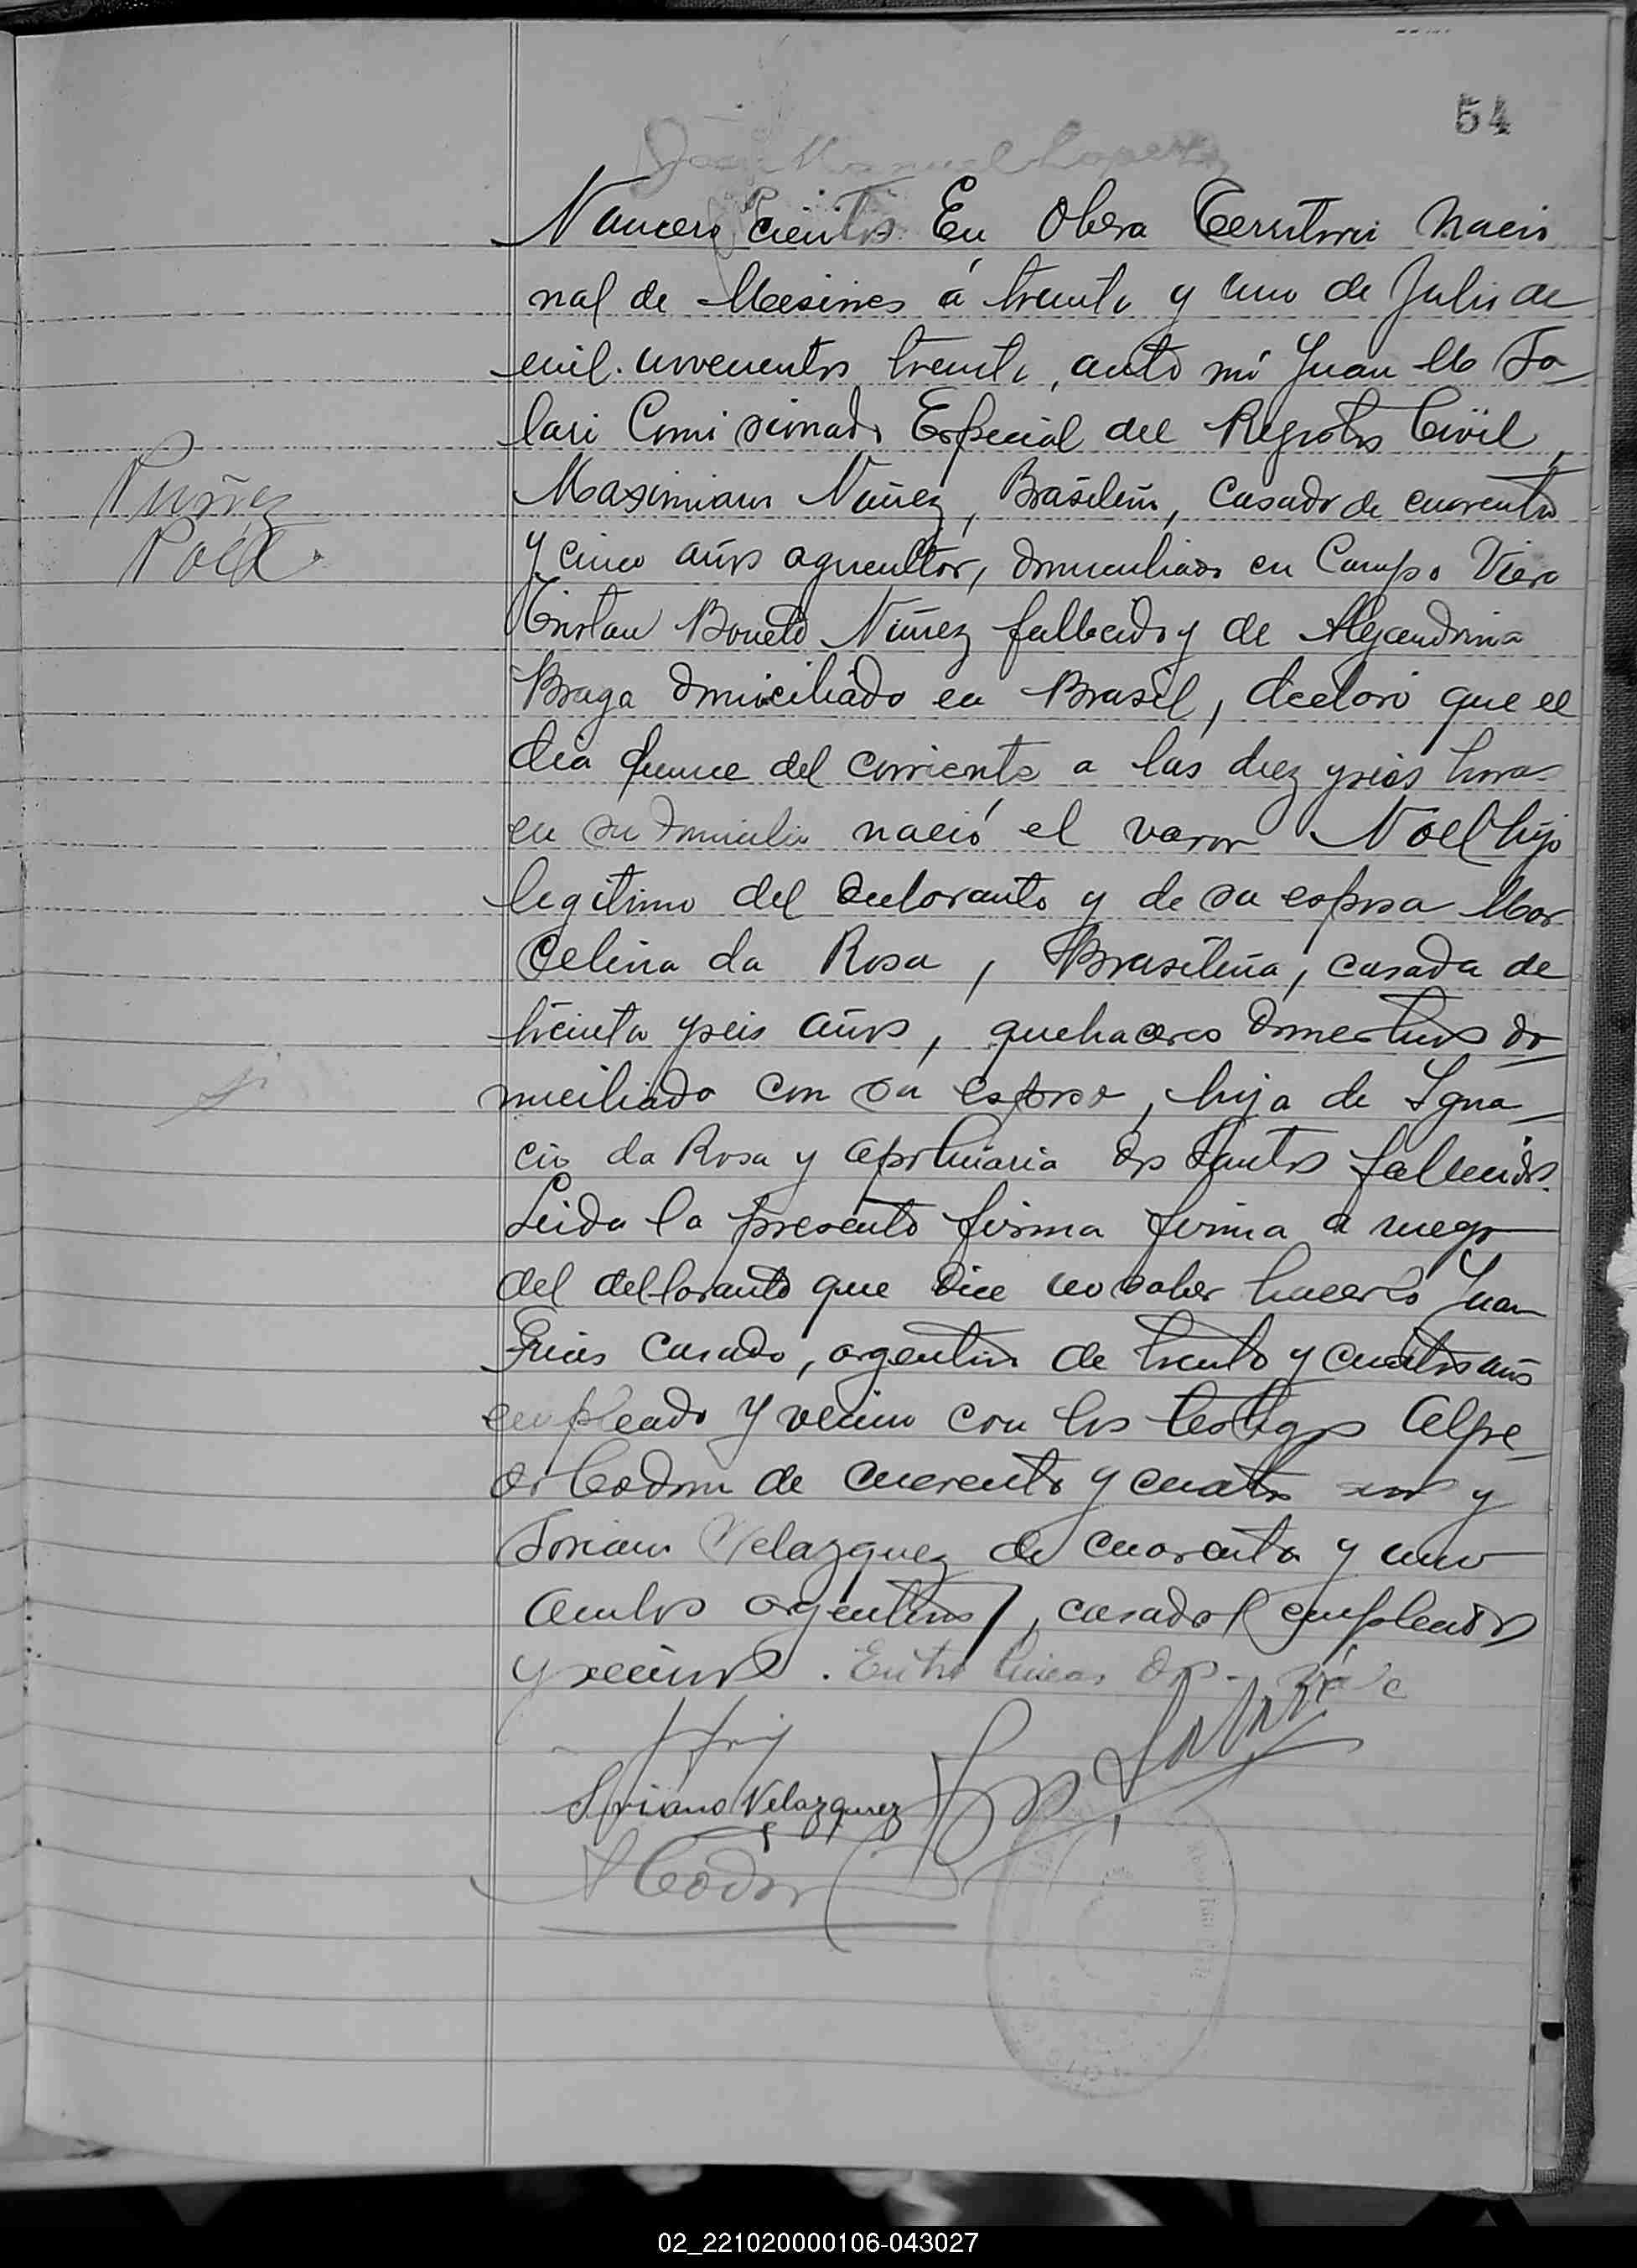 54
Numero Ciento En Obera Territorio Nacio
nal de Misiones á treinta y uno de Julio de
mil novecientos treinta, ante mí Juan M So
lari Comisionado Especial del Registro Civil,
Maximiano Núñez, Brasileño, casado de cuarenta
y cinco años agricultor, domiciliado en Campo Viera
Tristan Boneto Núñez fallecido y de Alejandrina
Braga domiciliado en Brasil, declaró que el
dia quince del corriente a las diez y seis horas
en su domicilio nació el varon Noel hijo
legítimo del declarante y de su esposa Mar
celina da Rosa, Brasileña, casada de
treinta y seis años, quehaceres domesticos do
miciliada con su esposo, hija de Igna
cio da Rosa y dos Santos fallecidos.
Leida la presente firma firma a ruego
del declarante que dice no saber hacerlo Juan
Frias casado, argentino de treinta y cuatro años
empleado y vecino con los testigos Alfre
do Codon de cuarenta y cuatro años y
Soriano Velazquez de cuarenta y uno
ambos argentinos, casados empleados
y vecinos. Entre lineas dos - vale
Núñez
Noel.
J Frias
Solari
Soriano Velazquez
A Codon
02_221020000106-043027